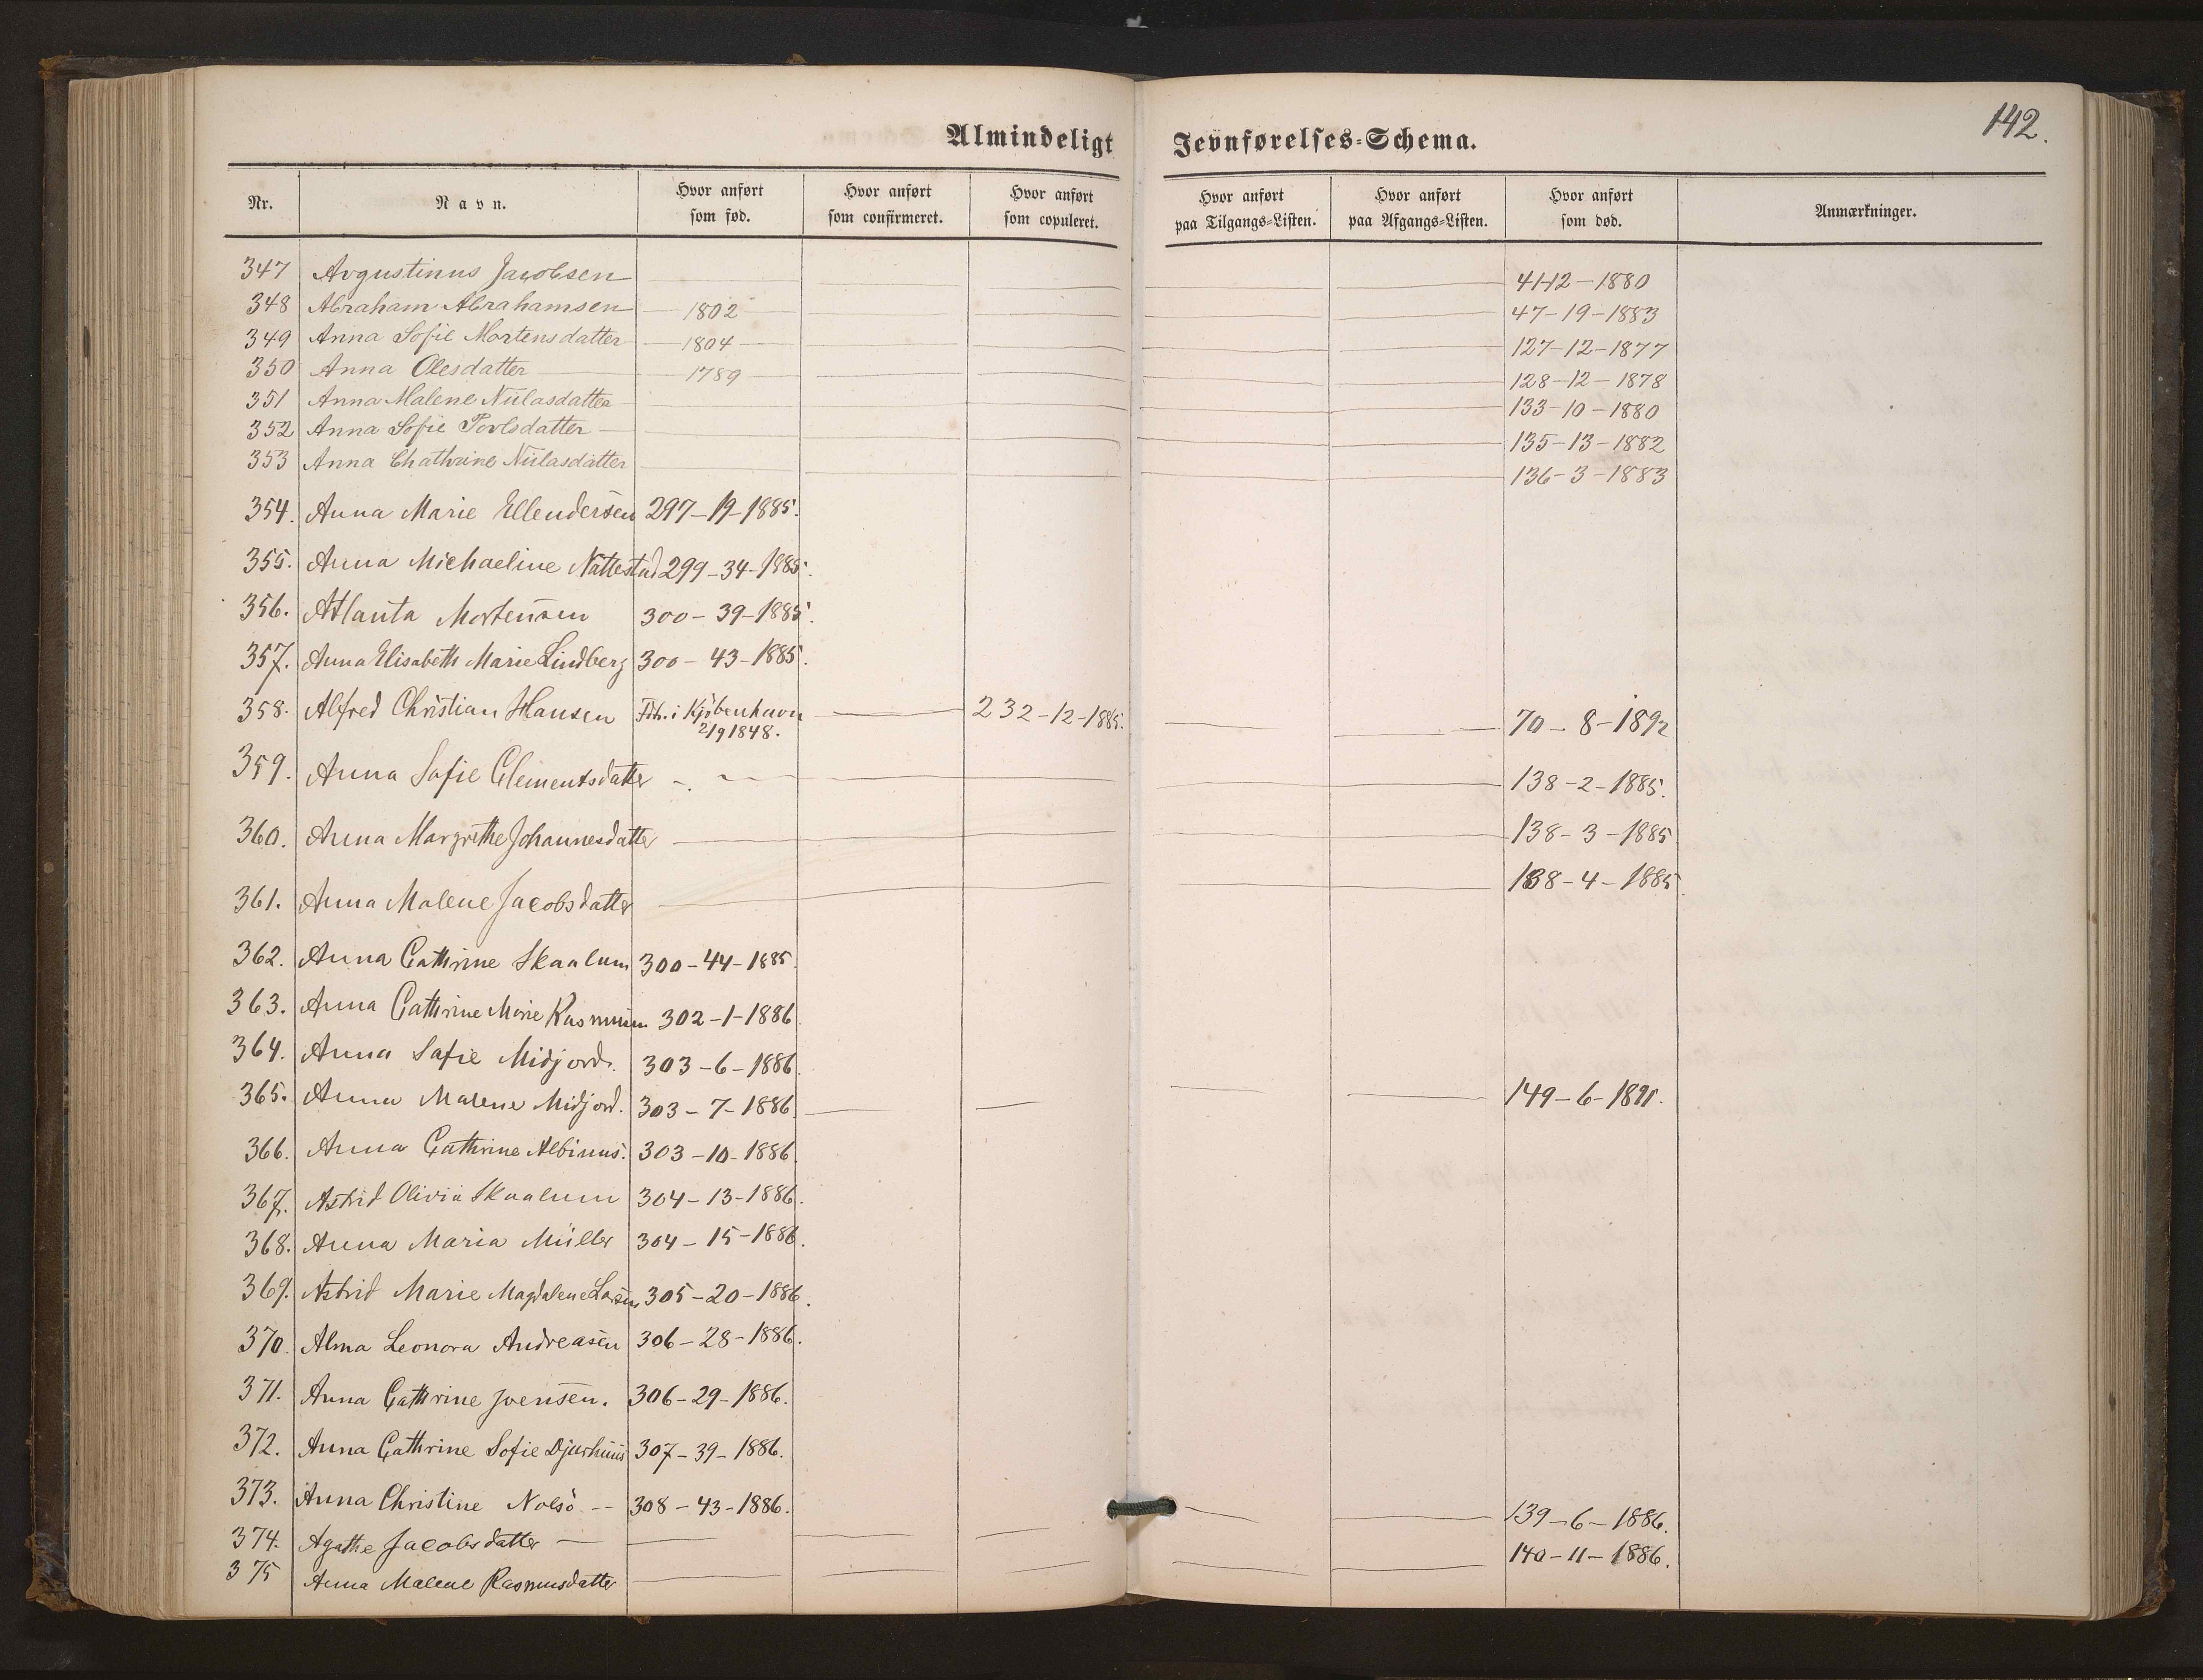 142.
Almindeligt Jevnførelses-Schema.
Nr. Navn. Hvor anført som fød. Hvor anført som confirmeret. Hvor anført som copuleret. Hvor anført paa Tilgangs-Listen. Hvor anført paa Afgangs-Listen. Hvor anført som død. Anmærkninger.
347 Avgustinus Jacobsen 41-12-1880
348 Abraham Abrahamsen 1802 47-19-1883
349 Anna Sofie Mortensdatter 1804 127-12-1877
350 Anna Olesdatter 1789 128-12-1878
351 Anna Malene Niclasdatter 133-10-1880
352 Anna Sofie Povlsdatter 135-13-1882
353 Anna Chathrine Niclasdatter 136-3-1883
354. Anna Marie Ellendersen 297-19-1885.
355. Anna Michaeline Nattestad 299-34-1885.
356. Atlanta Mortensen 300-39-1885.
357. Anna Elisabeth Marie Lindberg 300-43-1885.
358. Alfred Christian Hansen Fdt. i Kjøbenhavn 2/9 1848. 232-12-1885. 70-8-1892
359. Anna Sofie Clementsdatter 138-2-1885.
360. Anna Margrethe Johannesdatter 138-3-1885
361. Anna Malene Jacobsdatter 138-4-1885.
362. Anna Cathrine Skaalum 300-44-1885.
363. Anna Cathrine Marie Rasmussen 302-1-1886.
364. Anna Sofie Midjord. 303-6-1886.
365. Anna Malene Midjord. 303-7-1886. 149-6-1891.
366. Anna Cathrine Albinus. 303-10-1886.
367. Astrid Olivia Skaalum 304-13-1886.
368. Anna Maria Müller 304-15-1886.
369. Astrid Marie Magdalene Larsen 305-20-1886.
370. Alma Leonora Andreasen 306-28-1886.
371. Anna Cathrine Joensen. 306-29-1886.
372. Anna Cathrine Sofie Djurhuus 307-39-1886.
373. Anna Christine Nolsö 308-43-1886.
374. Agathe Jacobsdatter 139-6-1886.
375 Anna Malene Rasmusdatter 140-11-1886.